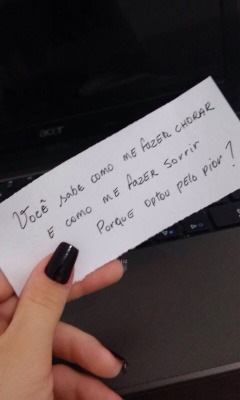 acer
Você sabe como me fazer CHORAR
E como me fazer sorrir
Porque optou pelo pior?